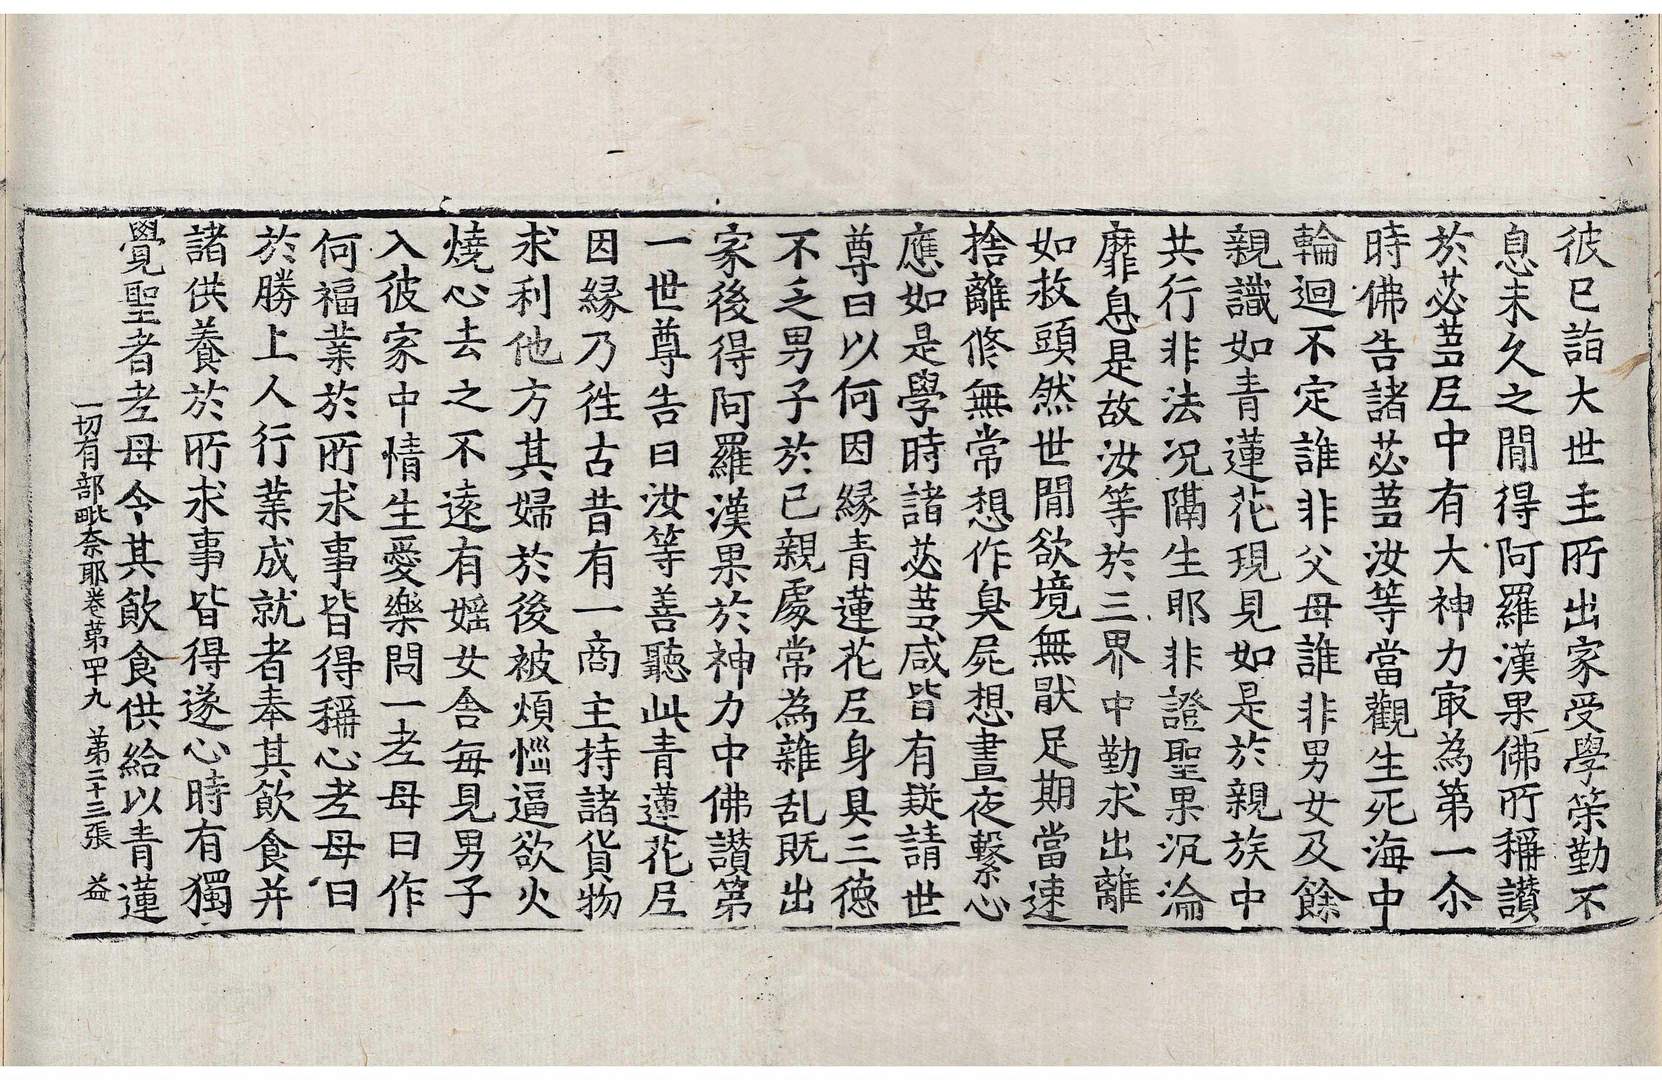 彼已詣大世主所出家受學策勤不
息未久之閒得阿羅漢果佛所稱讃
於苾蒭尼中有大神力㝡為第一尒
時佛告諸苾蒭汝等當觀生死海中
輪迴不定誰非父母誰非男女及餘
親識如青蓮花現見如是於親族中
共行非法況隔生耶非證聖果沉淪
靡息是故汝等於三界中勤求出離
如救頭然世閒欲境無猒足期當速
捨離修無常想作臭屍想晝夜繫心
應如是學時諸苾蒭咸皆有疑請世
尊曰以何因緣青蓮花尼身具三德
不乏男子於已親處常為雜乱既出
家後得阿羅漢果於神力中佛讃第
一世尊告曰汝等善聽此青蓮花尼
因緣乃徃古昔有一商主持諸貨物
求利他方其婦於後被煩惱逼欲火
燒心去之不遠有婬女舍每見男子
入彼家中情生愛樂問一老母曰作
何福業於所求事皆得稱心老母曰
於勝上人行業成就者奉其飲食并
諸供養於所求事皆得遂心時有獨
覺聖者老母令其飲食供給以青蓮
一切有部毗奈耶卷第四十九　第二十三張　益